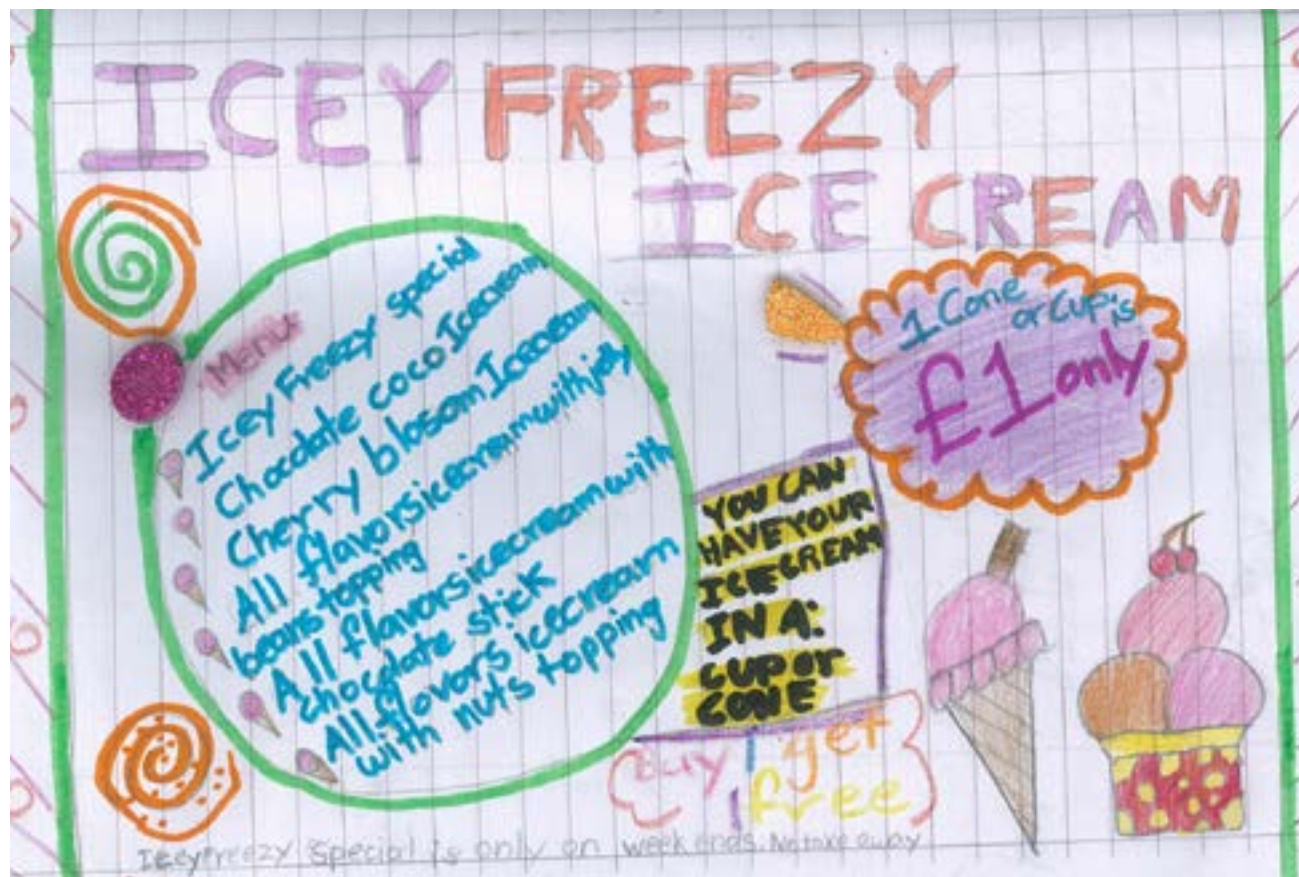 ICEY FREEZY
ICE CREAM
Menu
Icey Freezy special
Chocolate coco Icecream
Cherry blosom Icecream
All flavorsicecreamwithjelly
beanstopping
All flavorsicecreamwith
chocolate stick
All flavors icecream
with nuts topping
1 Cone
or Cup is
£1 only
YOU CAN
HAVE YOUR
ICECREAM
IN A:
CUP or
CONE
Buy 1 get
1 free
IceyFreezy special is only on week ends. No take away